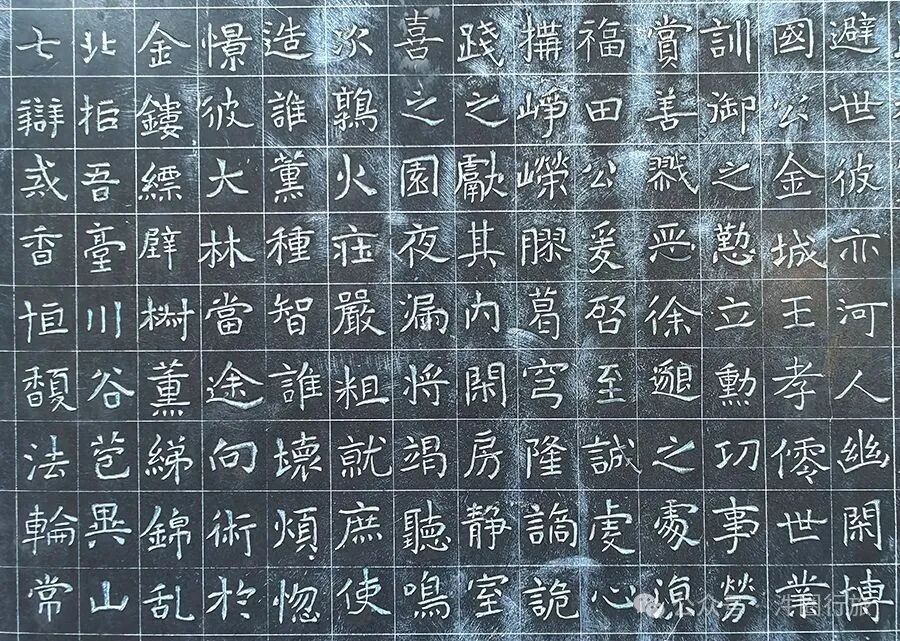 避世彼亦河人幽閑博
國公金城王孝世業
訓御之懃立勳功事勞
賞善戮恶徐邈之處涼
福田公爰啓至誠虔心
搆崢嶸膠葛穹隆譎詭
踐之獻其内閑房静室
喜之園夜漏将竭聽鳴
次鶉火莊嚴粗就庶使
造誰薰種智誰壞煩惚
憬彼大林當途向術於
金鏤縹壁樹薰綈錦乱
北拒吾臺川谷苞異山
七辯或香恒馥法輪常
公众号